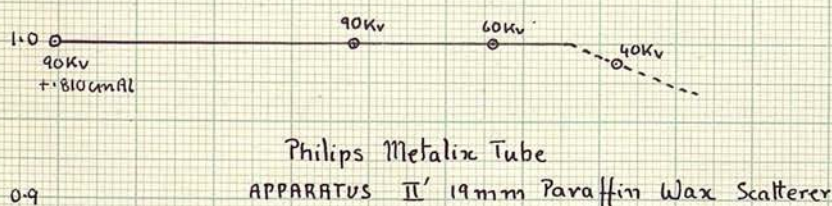 90Kv 60Kv
1.0 40Kv
90Kv
+.810cmAl
Philips Metalix Tube
0.9 APPARATUS II' 19mm Paraffin Wax Scatterer